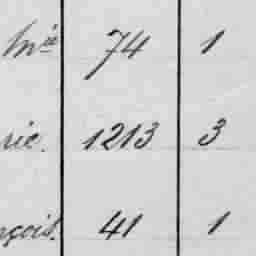 Mie 74 1
rie. 1213 3
nçois. 41 1